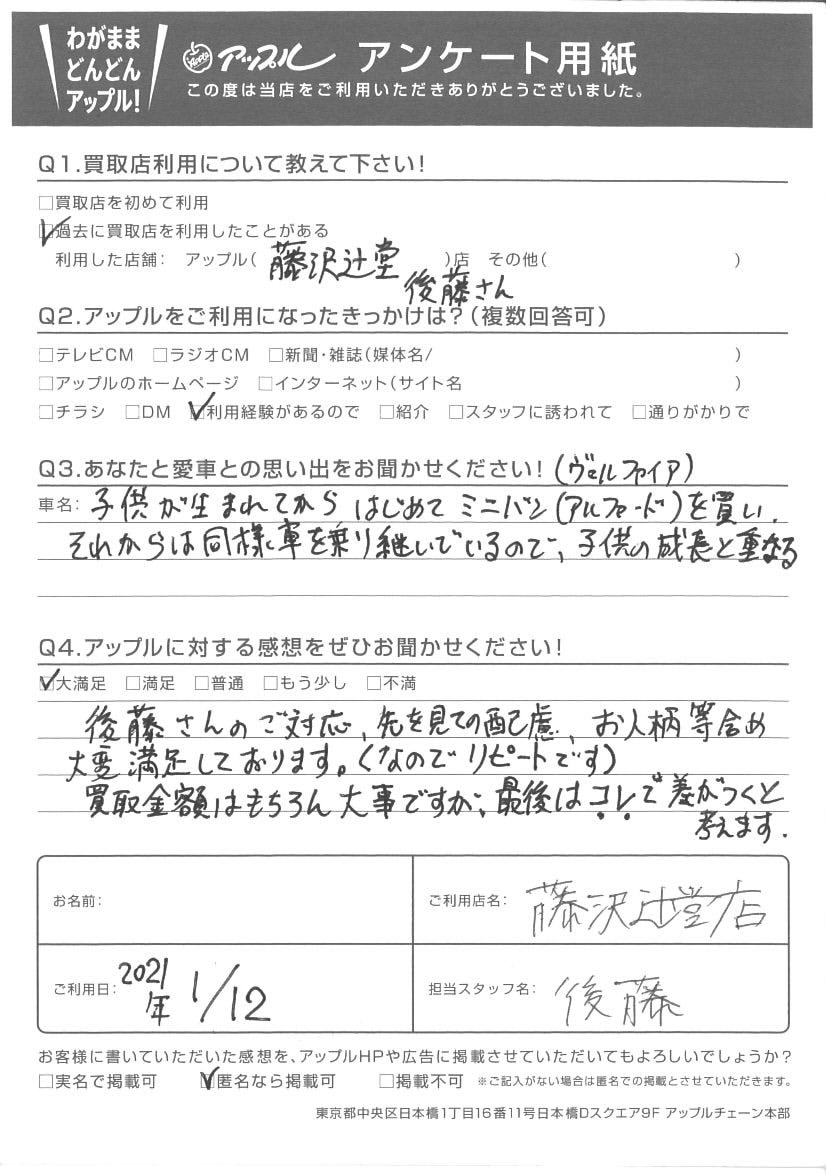 わがまま
どんどん
アップル!
Apple アップル アンケート用紙
この度は当店をご利用いただきありがとうございました。
Q1.買取店利用について教えて下さい!
□買取店を初めて利用
☑過去に買取店を利用したことがある
利用した店舗: アップル( 藤沢辻堂 )店 その他( )
後藤さん
Q2.アップルをご利用になったきっかけは?(複数回答可)
□テレビCM □ラジオCM □新聞・雑誌(媒体名/ )
□アップルのホームページ □インターネット(サイト名 )
□チラシ □DM ☑利用経験があるので □紹介 □スタッフに誘われて □通りがかりで
Q3.あなたと愛車との思い出をお聞かせください! (ヴェルファイア)
車名: 子供が生まれてから はじめて ミニバン(アルファード)を買い、
それからは同様車を乗り継いでいるので、子供の成長と重なる
Q4.アップルに対する感想をぜひお聞かせください!
☑大満足 □満足 □普通 □もう少し □不満
後藤さんのご対応、先を見ての配慮、お人柄等含め
大変満足しております。(なのでリピートです)
買取金額はもちろん大事ですが、最後はコレで差がつくと
考えます.
お名前:
ご利用店名: 藤沢辻堂店
ご利用日: 2021年 1/12
担当スタッフ名: 後藤
お客様に書いていただいた感想を、アップルHPや広告に掲載させていただいてもよろしいでしょうか?
□実名で掲載可 ☑匿名なら掲載可 □掲載不可 ※ご記入がない場合は匿名での掲載とさせていただきます。
東京都中央区日本橋1丁目16番11号日本橋Dスクエア9F アップルチェーン本部